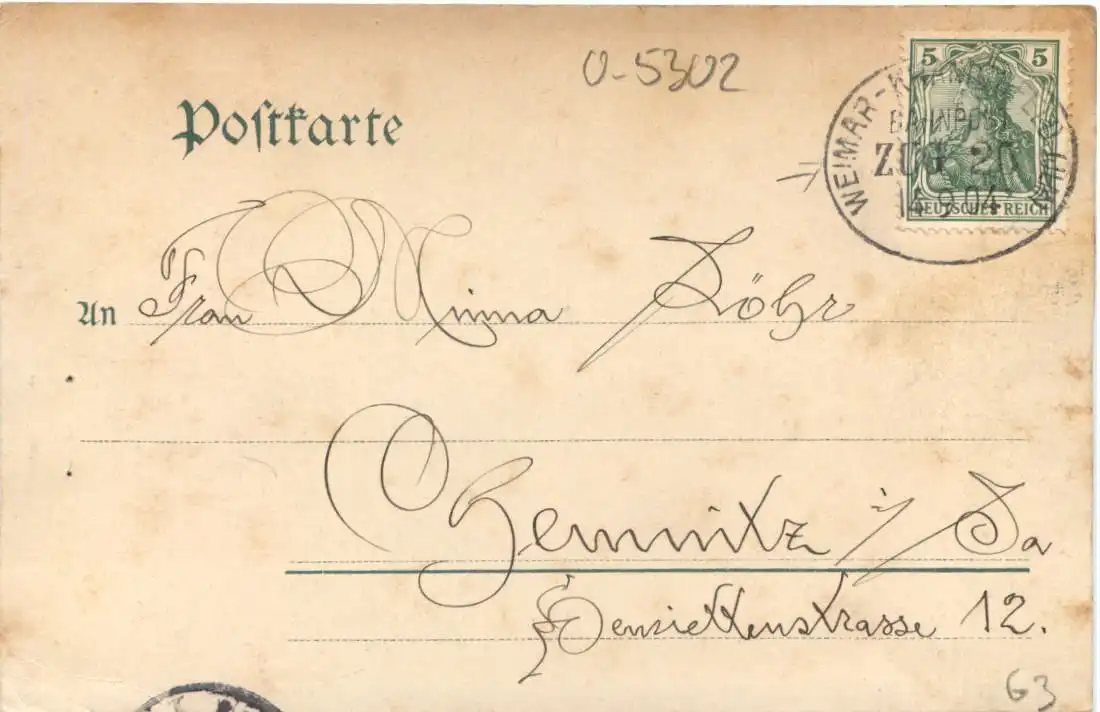 O-5302
5 5
WEIMAR-KRANICHFELD
BAHNPOST
ZUG 20
14 9 04
DEUTSCHES REICH
Postkarte
An Frau Minna Löhr
Chemnitz i/Sa
Henriettenstrasse 12.
63